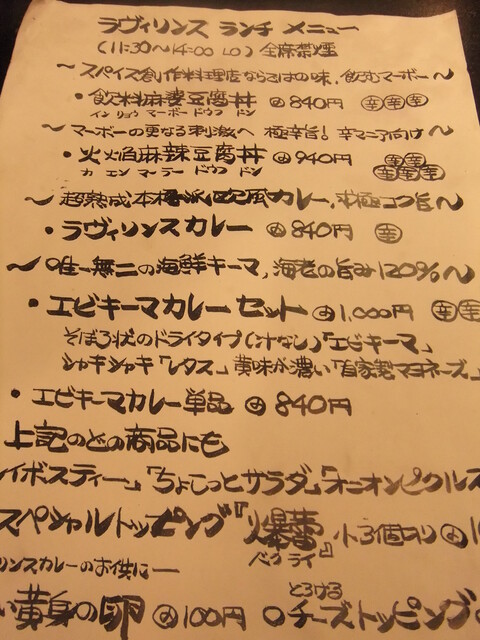 ラヴィリンス ランチ メニュー
(11:30〜14:00 LO) 全席禁煙
〜スパイス創作料理店ならではの味、飲むマーボー〜
・飲料麻婆豆腐丼 ¥840円 辛辛辛
インリョウ マーボー ドウフ ドン
〜マーボーの更なる刺激へ 極辛旨! 辛マニア向け〜
・火焔麻辣豆腐丼 ¥940円 辛辛辛辛辛
カ エン マーラー ドウフ ドン
〜超熟成、本格派欧風カレー、本極コク旨〜
・ラヴィリンスカレー ¥840円 辛
〜唯一無二の海鮮キーマ、海老の旨み120%〜
・エビキーマカレーセット ¥1,000円 辛辛
そぼろ状のドライタイプ(汁なし)「エビキーマ」
シャキシャキ「レタス」黄味が濃い「自家製マヨネーズ」
・エビキーマカレー単品 ¥840円
上記のどの商品にも
イボスティー」「ちょこっとサラダ」「オニオンピクルス
スペシャルトッピング『爆蕾』小3個切り ¥1
バクライ
リンスカレーのお供に―
い黄身の卵 ¥100円 ○チーズトッピング
とろける